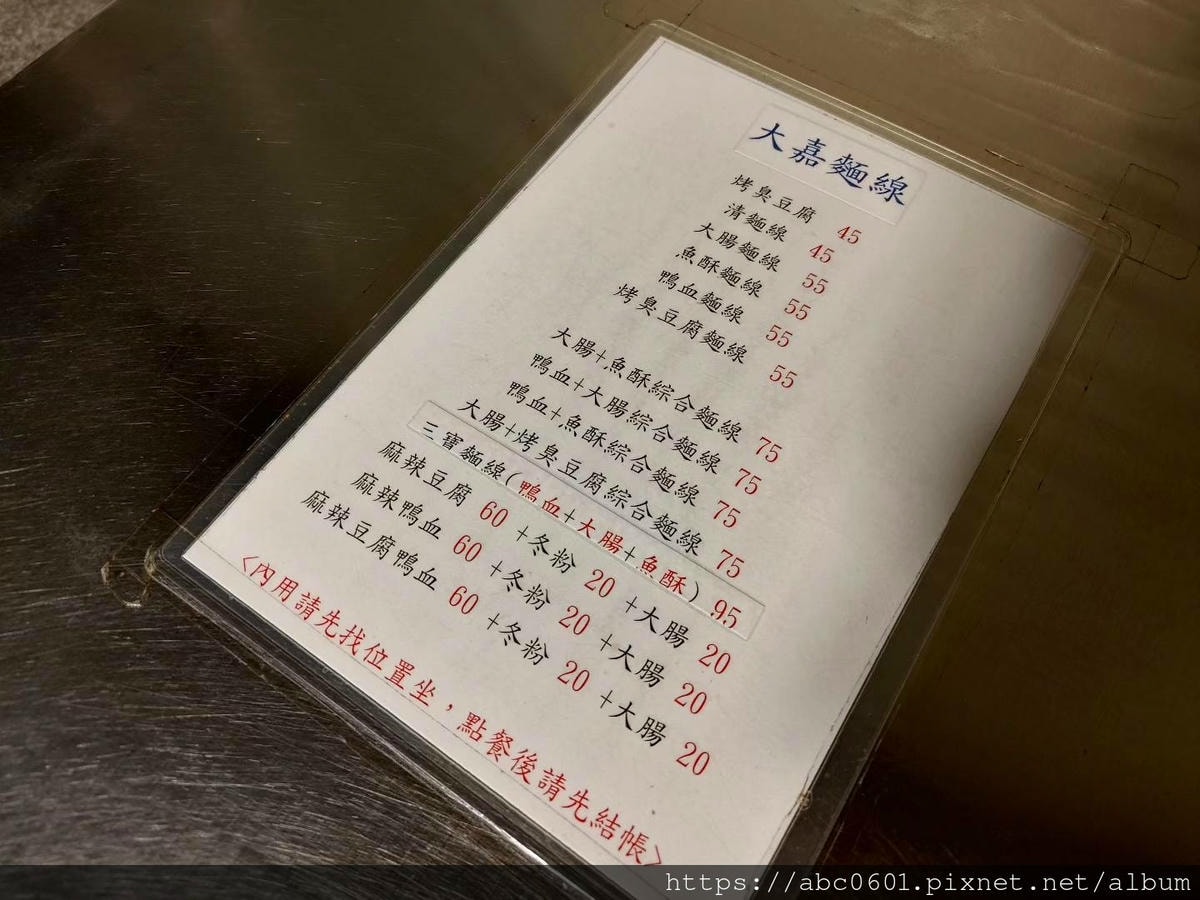 大嘉麵線
烤臭豆腐 45
清麵線 45
大腸麵線 55
魚酥麵線 55
鴨血麵線 55
烤臭豆腐麵線 55
大腸+魚酥綜合麵線 75
鴨血+大腸綜合麵線 75
鴨血+魚酥綜合麵線 75
大腸+烤臭豆腐綜合麵線 75
三寶麵線(鴨血+大腸+魚酥) 95
麻辣豆腐 60 +冬粉 20 +大腸 20
麻辣鴨血 60 +冬粉 20 +大腸 20
麻辣豆腐鴨血 60 +冬粉 20 +大腸 20
<內用請先找位置坐，點餐後請先結帳>
https://abc0601.pixnet.net/album